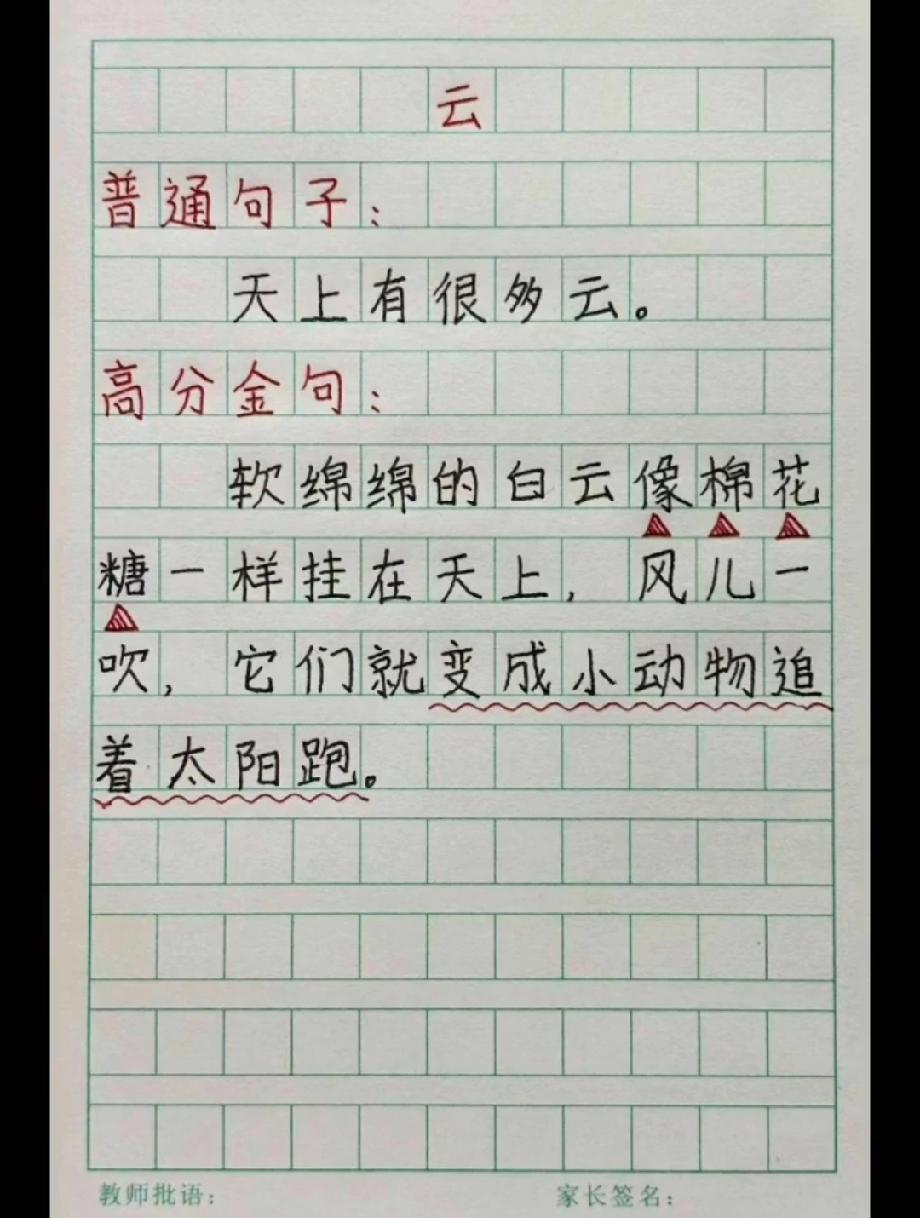 云
普通句子：
天上有很多云。
高分金句：
软绵绵的白云像棉花
糖一样挂在天上，风儿一
吹，它们就变成小动物追
着太阳跑。
教师批语：
家长签名：